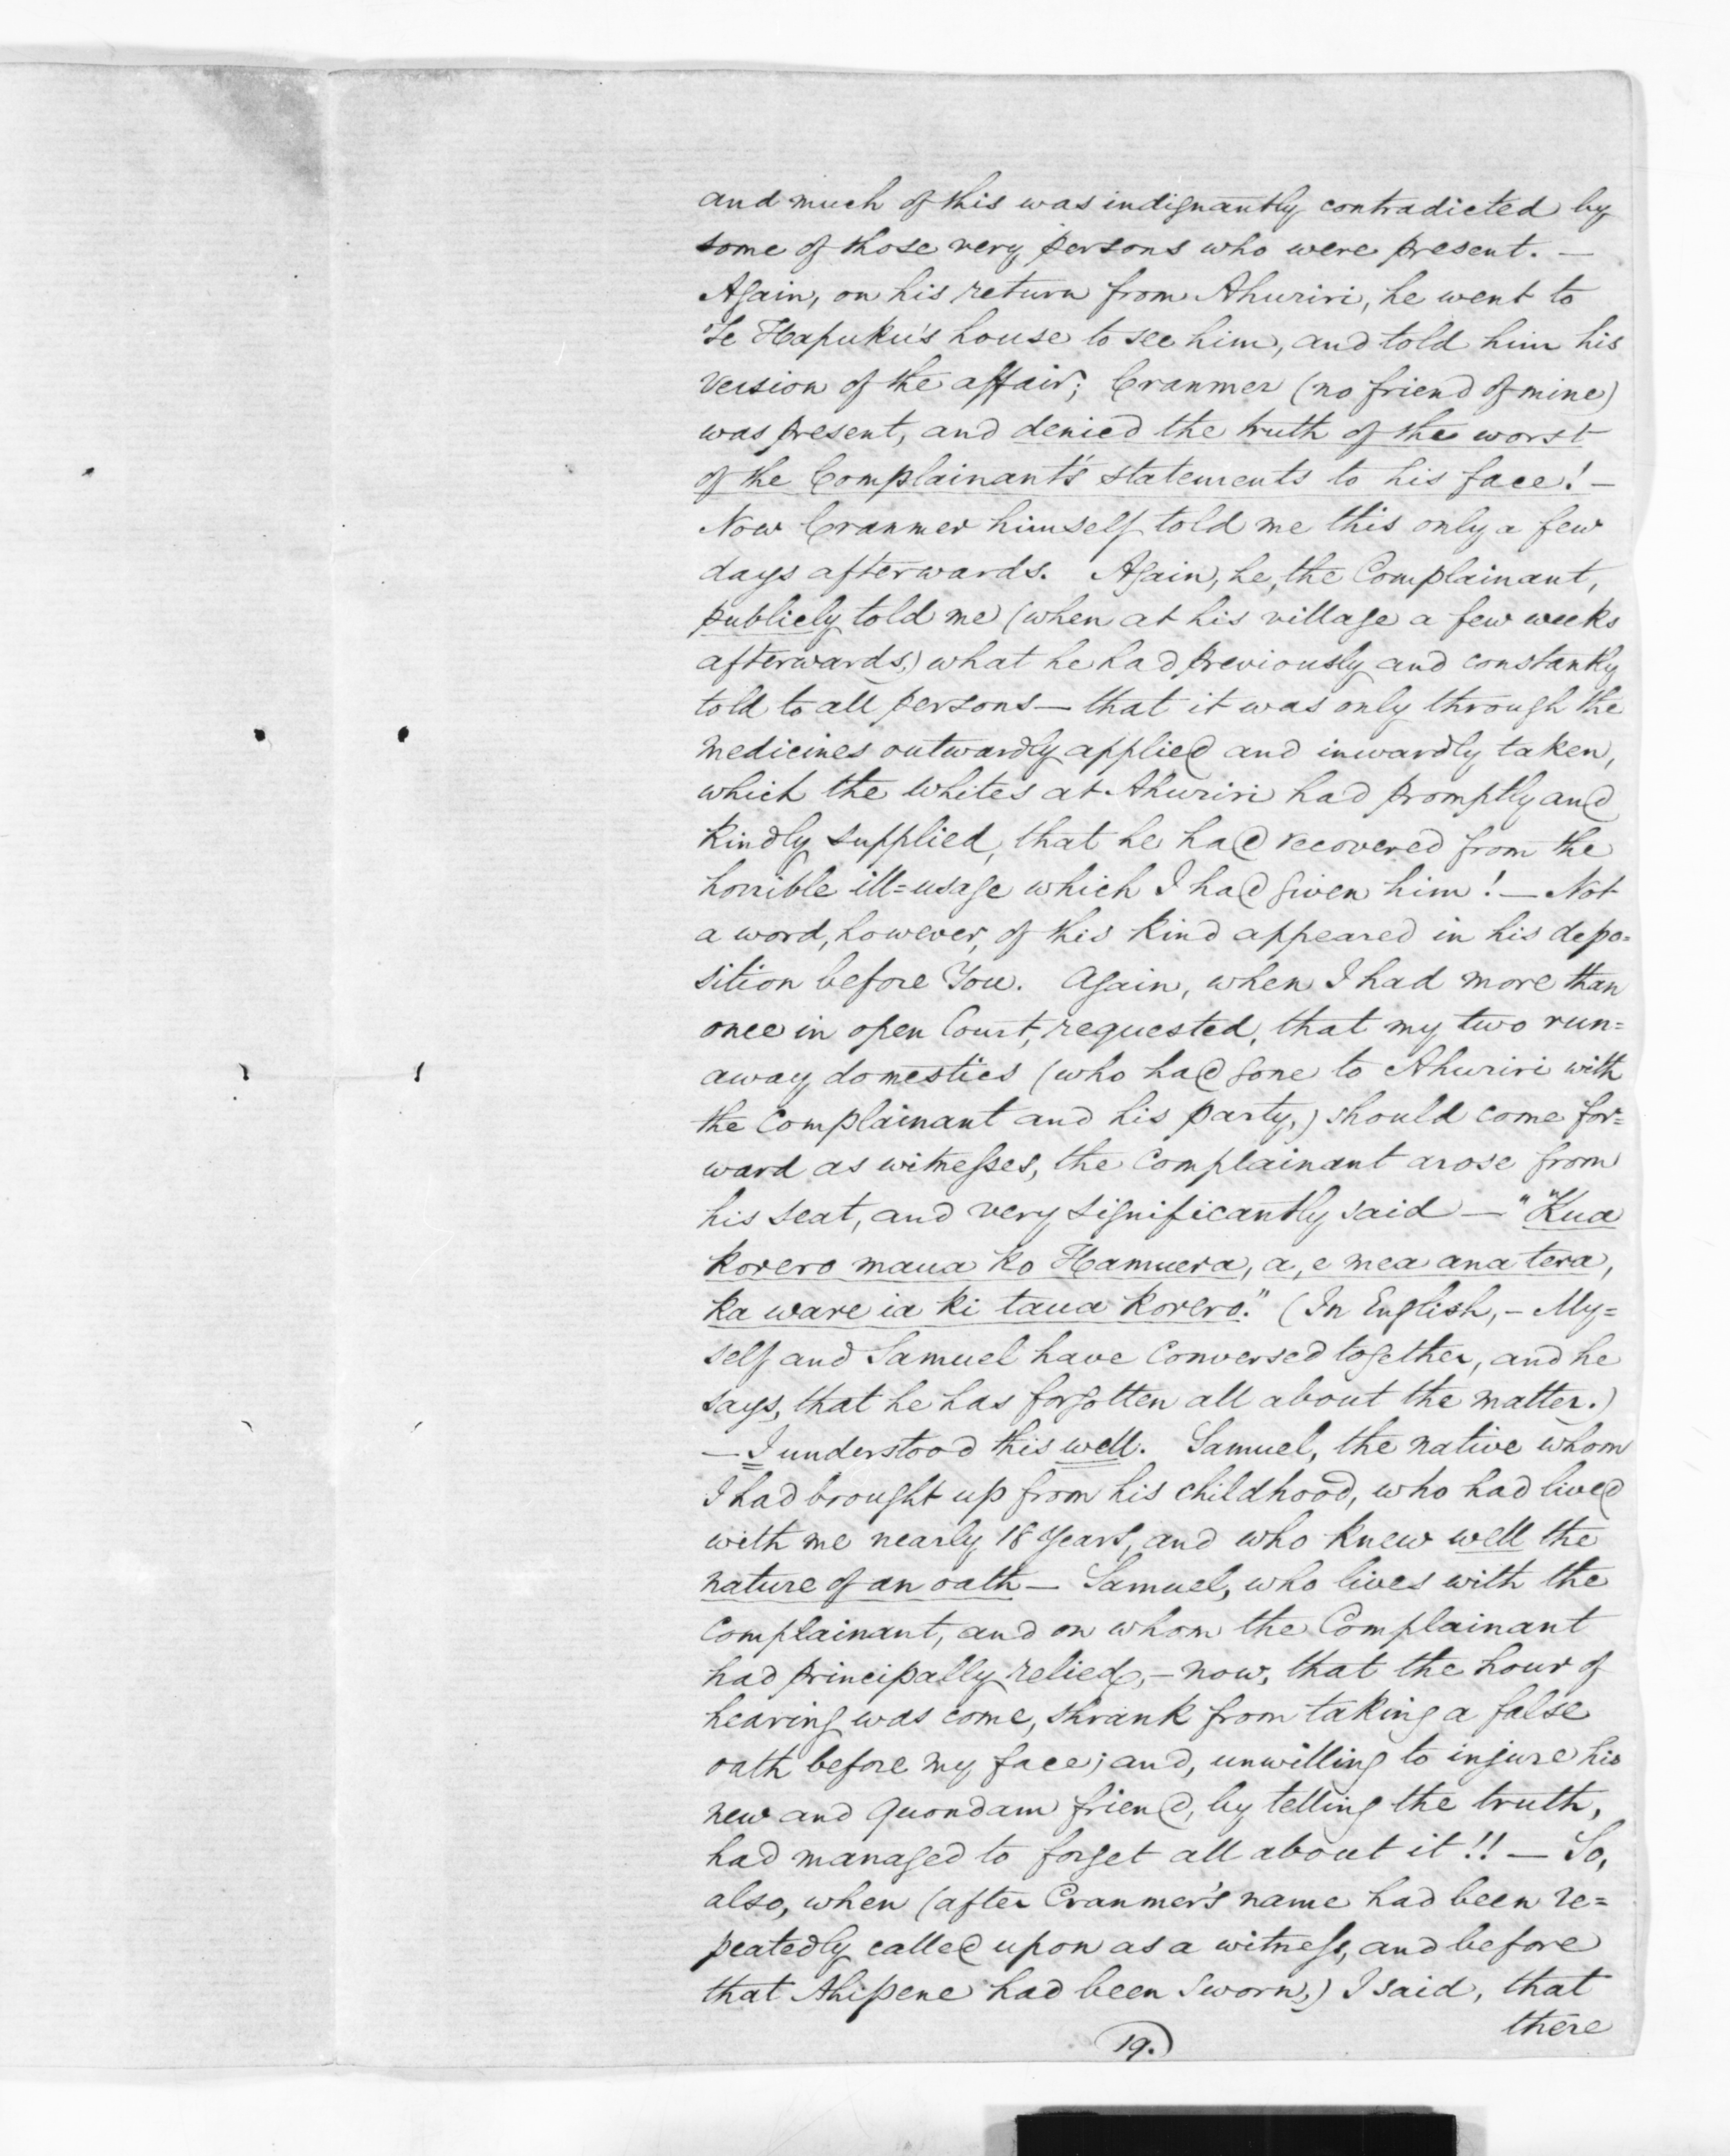 and much of this was indignantly contradicted by
some of those very persons who were present. —
Again, on his return from Ahuriri, he went to
Te Hapuku's house to see him, and told him his
version of the affair; Cranmer (no friend of mine)
was present, and denied the truth of the worst
of the Complainant's statements to his face! —
Now Cranmer himself told me this only a few
days afterwards. Again, he, the Complainant,
publicly told me (when at his village a few weeks
afterwards,) what he had previously and constantly
told to all persons — that it was only through the
medicines outwardly applied and inwardly taken,
which the whites at Ahuriri had promptly and
kindly supplied, that he had recovered from the
horrible ill=usage which I had given him! — Not
a word, however, of this kind appeared in his depo=
sition before You. Again, when I had more than
once in open Court, requested, that my two run=
away domestics (who had gone to Ahuriri with
the Complainant and his party,) should come for=
ward as witnesses, the Complainant arose from
his seat, and very significantly said — "Kua
korero maua ko Hamuera, a, e mea ana tera,
ka ware ia ki taua korero." (In English, – My=
self and Samuel have conversed together, and he
says, that he has forgotten all about the matter.)
— I understood this well. Samuel, the native whom
I had brought up from his childhood, who had lived
with me nearly 18 years, and who knew well the
nature of an oath — Samuel, who lives with the
Complainant, and on whom the Complainant
had principally relied, – now, that the hour of
hearing was come, shrank from taking a false
oath before my face; and, unwilling to injure his
new and quondam friend, by telling the truth,
had managed to forget all about it!! — So,
also, when (after Cranmer's name had been re=
peatedly called upon as a witness, and before
that Ahipene had been sworn,) I said, that
there
19.